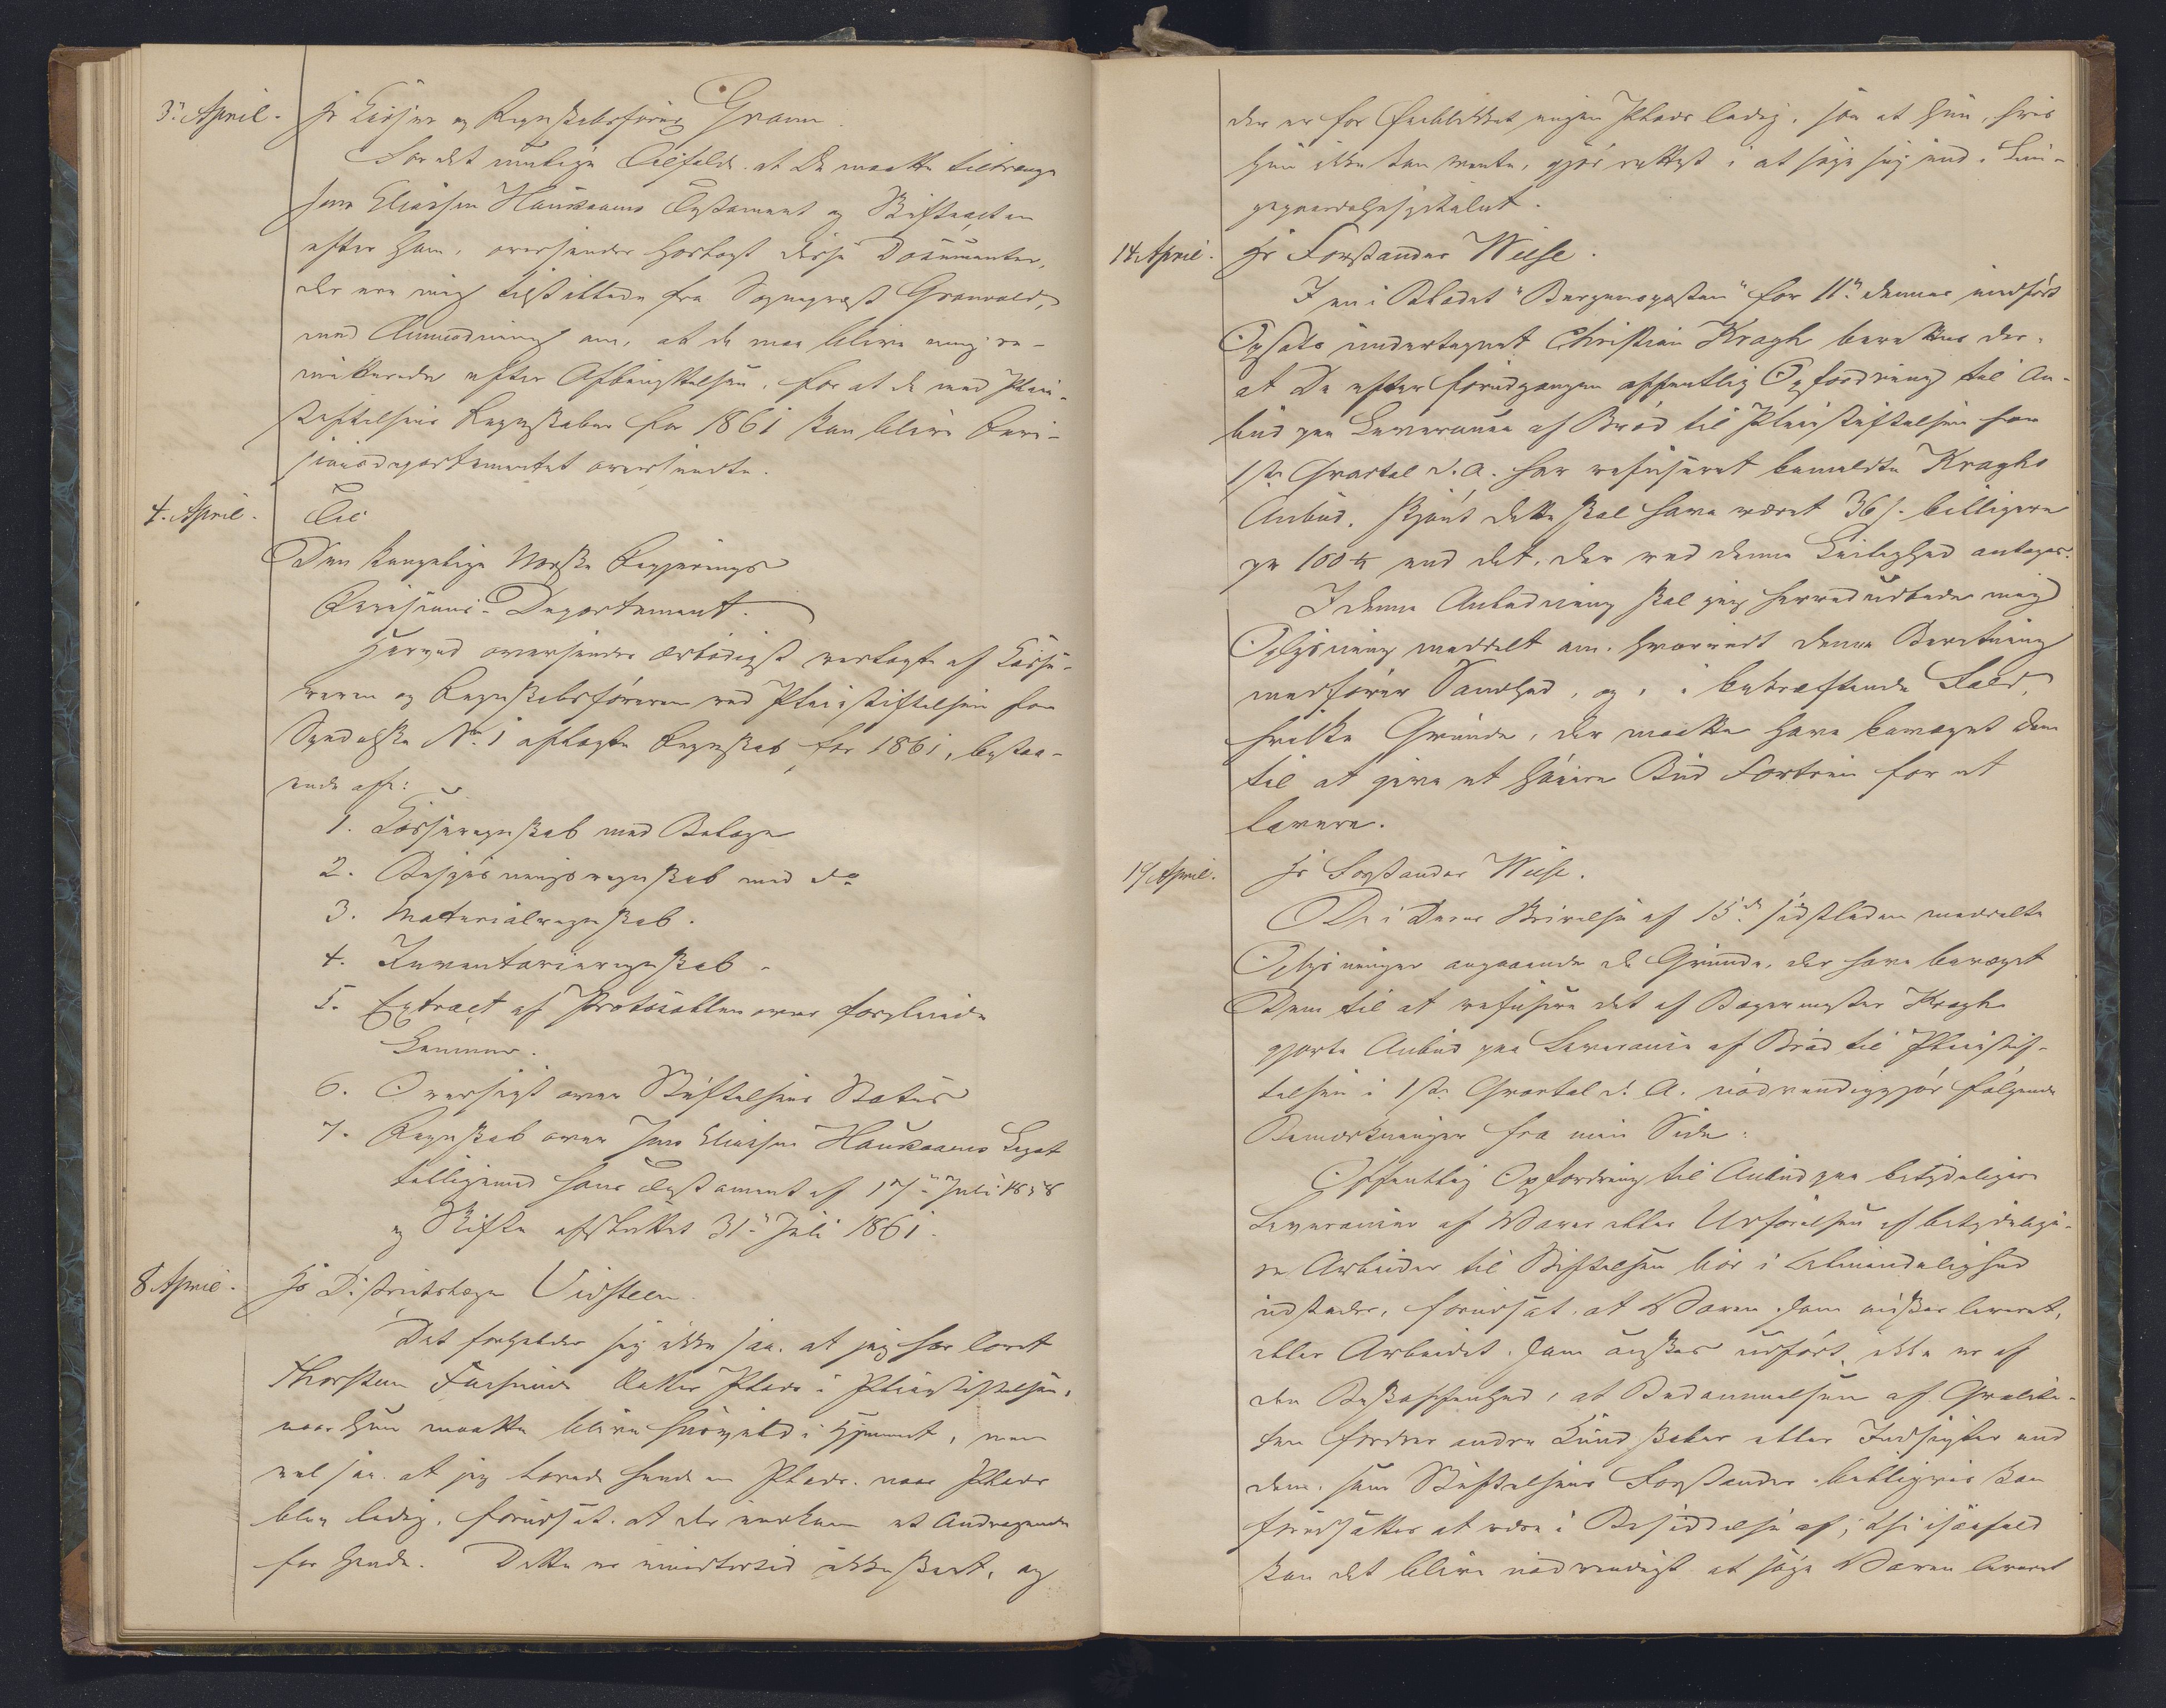 3. April. Hr Kasserer og Regnskabsfører Gram.
For det mulige Tilfælde at De maatte tiltrænge
Jens Eliassen Haukaaens Testament og Skifteacten
efter ham, oversendes hoslagt disse Documenter,
der ere mig tilstillede fra Sogneprest Grønvold,
med Anmodning om, at de maa blive mig re-
mitterede efter Afbenyttelsen, for at de med Pleie-
stiftelsens Regnskaber for 1861 kan blive Revi-
sionsdepartementet oversendte.
4. April. Til
Den kongelige Norske Regjerings
Revisions-Departement.
Herved oversendes ærbødigst vedlagte af Kasse-
reren og Regnskabsføreren ved Pleiestiftelsen for
Spedalske No 1 aflagte Regnskab for 1861, bestaa-
ende af:
1. Kasseregnskab med Belæge
2. Bespisningsregnskab med do
3. Materialregnskab.
4. Inventarieregnskab.
5. Extract af Protocollen over forpleiede
Lemmer.
6. Oversigt over Stiftelsens Status
7. Regnskab over Jens Eliassen Haukaaens Legat
tilligemed hans Testament af 17. Juli 1858
og Skifte afsluttet 31. Juli 1861.
8 April. Hr Districtslæge Vidsteen.
Det forholder sig ikke saa, at jeg har lovet
Thorsten Datter Plads i Pleiestiftelsen,
naar hun maatte blive i Hjemmet, men
vel saa, at jeg lovede hende en Plads, naar Plads
blev ledig, forudsat, at der indkom et Andragende
for hende. Dette er imidlertid ikke skeet, og
der er for Øieblikket ingen Plads ledig, saa at hun, hvis
hun ikke kan vente, gjør rettest i at søge sig ind i Lun-
gegaardshospitalet.
14 April. Hr Forstander Wiese.
I en i Bladet "Bergensposten" for 11te dennes indført
Opsats undertegnet Christian Kragh berettes der,
at De efter forudgangen offentlig Opfordring til An-
bud paa Leverance af Brød til Pleiestiftelsen for
1ste Qvartal d. A. har refuseret bemeldte Kraghs
Anbud, skjønt dette skal have været 36 s. billigere
pr 100 ℔ end det, der ved denne Leilighed antoges.
I denne Anledning skal jeg herved udbede mig
Oplysning meddelt om, hvorvidt denne Beretning
medfører Sandhed, og, i bekræftende Fald,
hvilke Grunde, der maatte have bevæget Dem
til at give et høiere Bud Fortrin for et
lavere.
19 April. Hr Forstander Wiese.
De i Deres Skrivelse af 15de sidstleden meddelte
Oplysninger angaaende de Grunde, der have bevæget
Dem til at refusere det af Bagermester Kragh
gjorte Anbud paa Leverance af Brød til Pleiestif-
telsen i 1ste Qvartal d. A. nødvendiggjør følgende
Bemærkninger fra min Side:
Offentlig Opfordring til Anbud paa betydeligere
Leverancer af Varer eller Udførelsen af betydelige-
re Arbeider til Stiftelsen bør i Almindelighed
udstedes, forudsat, at Varen, som ønskes leveret,
eller Arbeidet, som ønskes udført, ikke er af
den Beskaffenhed, at Bedømmelsen af Qvalite-
ten fordrer andre Kundskaber eller Indsigter end
dem, som Stiftelsens Forstander billigviis kan
forudsættes at være i Besiddelse af; thi isaafald
kan det blive nødvendigt at søge Varen leveret